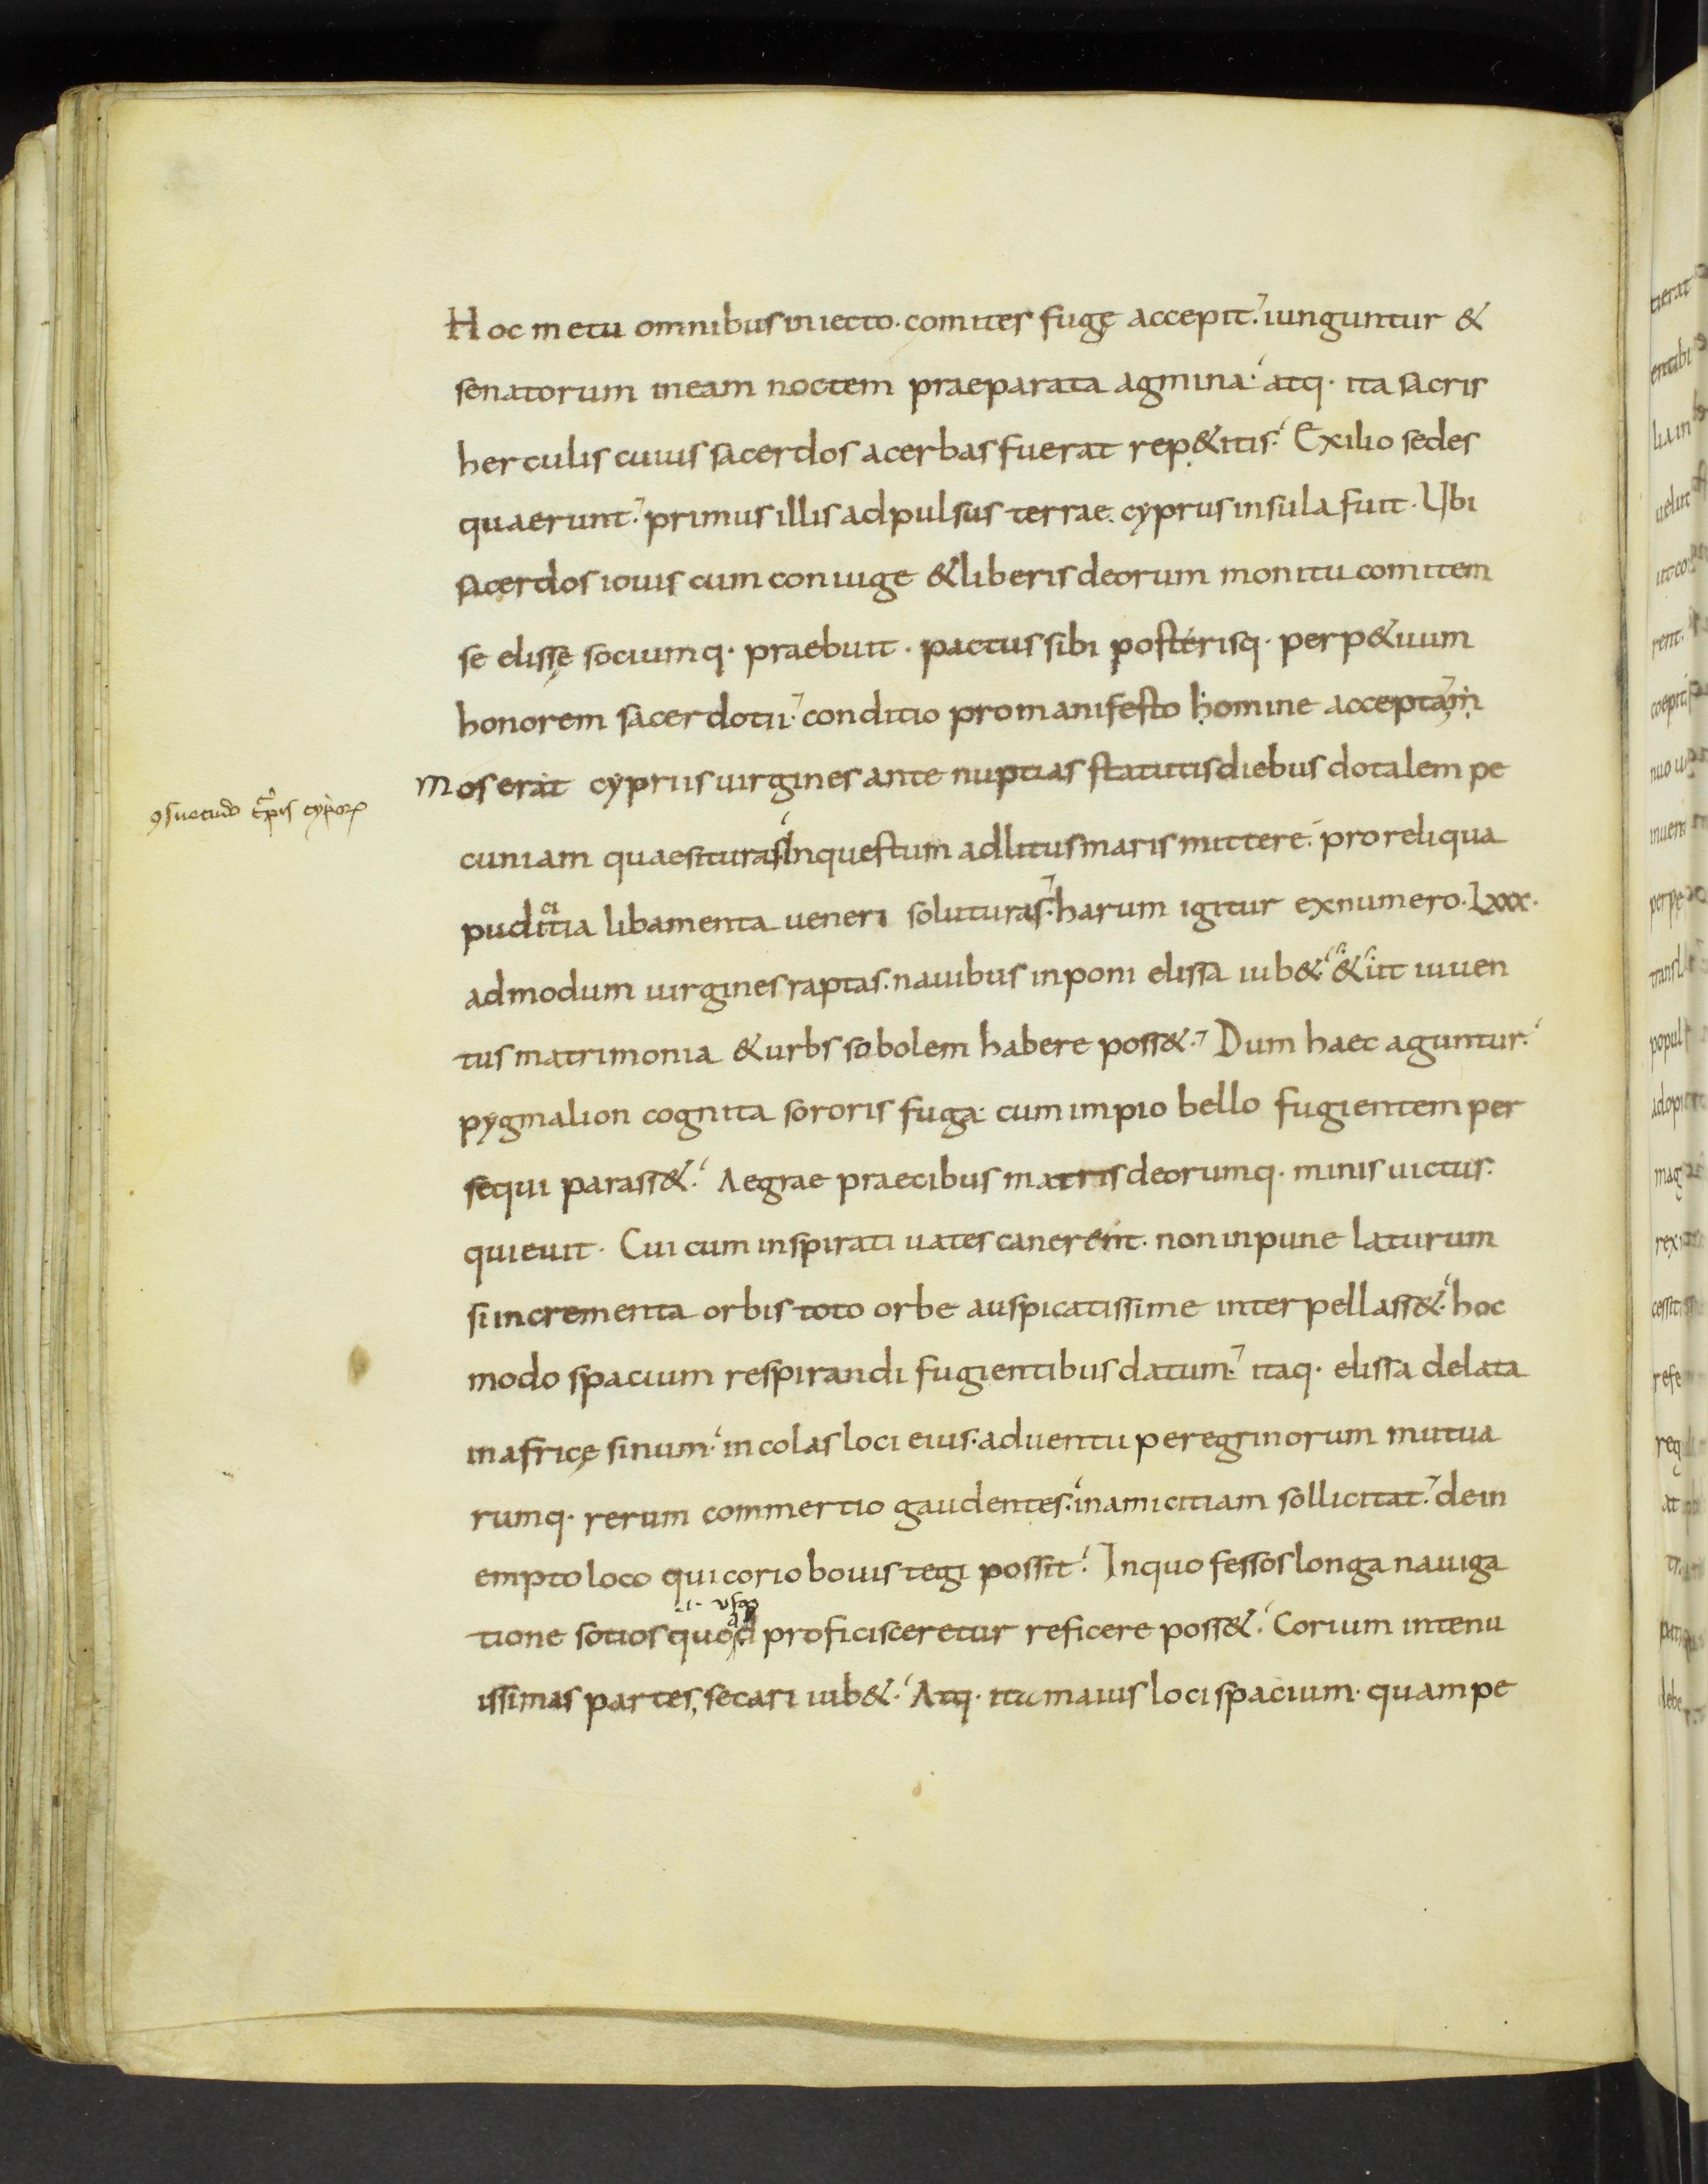 Hoc metu omnibus iniecto. comites fugę accepit. iunguntur &
senatorum in eam noctem praeparata agmina. atq. ita sacris
herculis cuius sacerdos acerbas fuerat rep&itis. Exilio sedes
quaerunt. primus illis adpulsus terrae. cyprus insula fuit. Ubi
sacerdos iouis cum coniuge & liberis deorum monitu comitem
se elissę sociumq. praebuit. pactus sibi posterisq. perp&uum
honorem sacerdotii. conditio pro manifesto homine acceptam
Mos erat cypriis uirgines ante nuptias statutis diebus dotalem pe
ↄsuetudo cyprioꝝ
cuniam quaesituras. In questum ad litus maris mittere. pro reliqua
puditia libamenta ueneri soluturas. harum igitur ex numero. Lxxx.
ci
admodum uirgines raptas. nauibus inponi elissa iub&. & ut iuuen
tus matrimonia & urbs sobolem habere poss&. Dum haec aguntur.
pygmalion cognita sororis fuga. cum impio bello fugientem per
sequi parass&. Aegrae praecibus matris deorumq. minis uictus.
quieuit. Cui cum inspirati uates canerent. non inpune laturum
si incrementa orbis toto orbe auspicatissime interpellass&. hoc
modo spacium respirandi fugientibus datum. itaq. elissa delata
in africę sinum. incolas loci eius. aduentu peregrinorum mutua
rumq. rerum commertio gaudentes. in amicitiam sollicitat. dein
empto loco qui corio bouis tegi possit. In quo fessos longa nauiga
tione sotios quod proficisceretur reficere poss&. Corium in tenu
issimas partes, secari iub&. Atq. ita maius loci spacium. quam pe